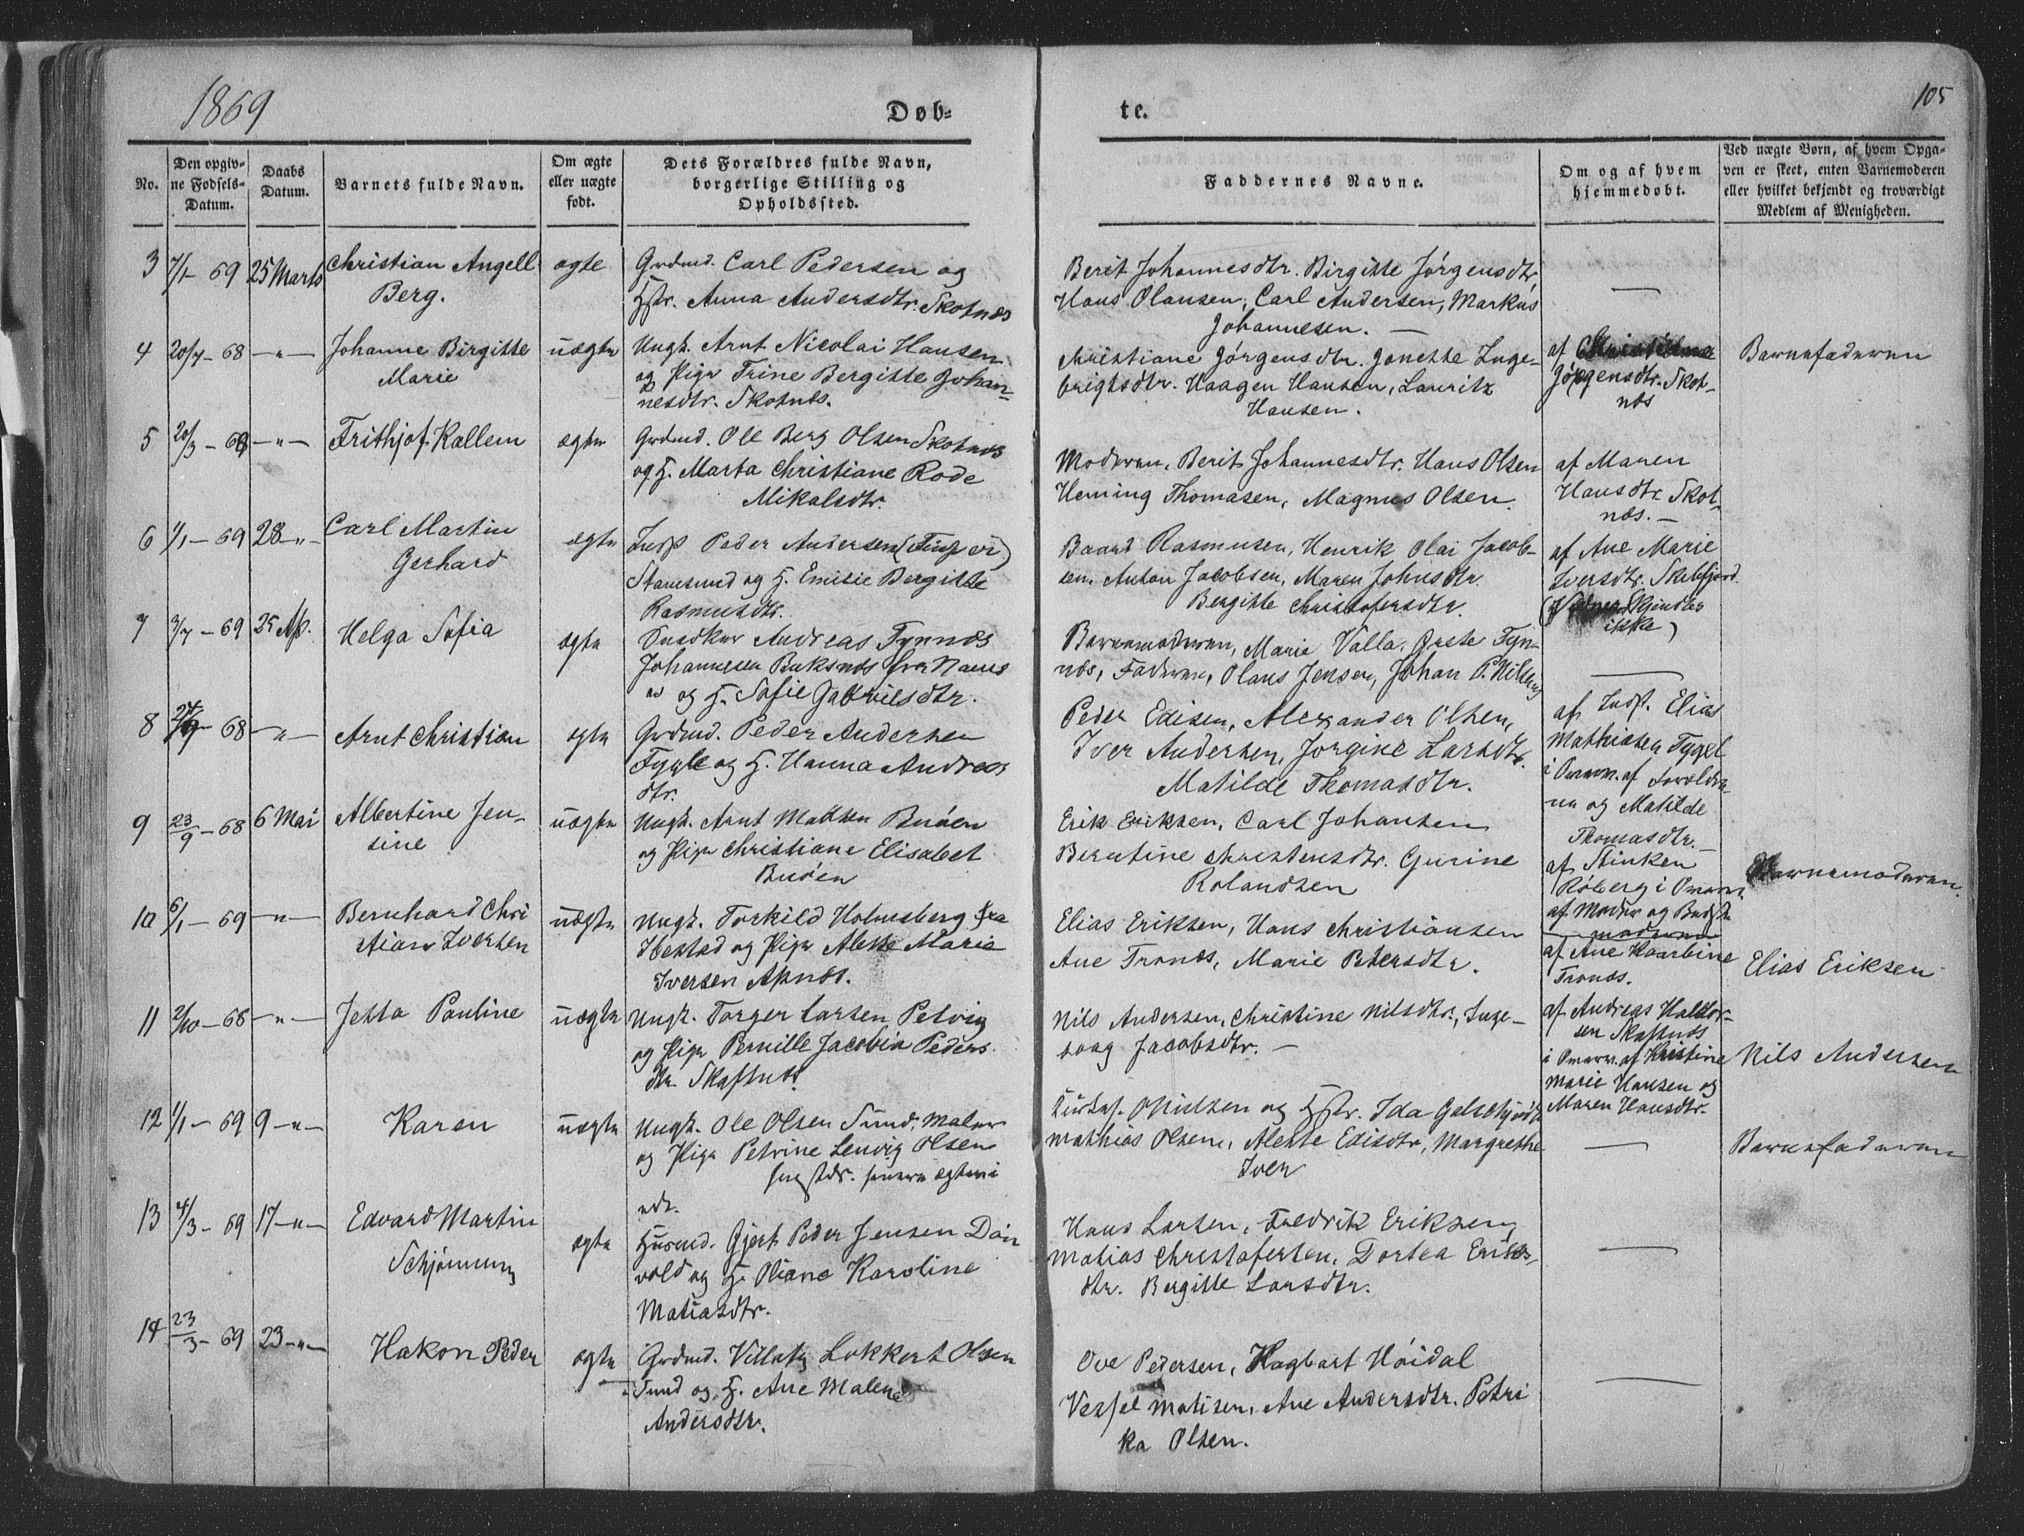 1869
Døb-
te.
105
No.
Den opgiv-
ne Fødsels-
Datum.
Daabs
Datum.
Barnets fulde Navn.
Om ægte
eller uægte
født.
Dets Forældres fulde Navn,
borgerlige Stilling og
Opholdssted.
Faddernes Navne.
Om og af hvem
hjemmedøbt.
Ved uægte Børn, af hvem Opga-
ven er skeet, enten Barnemoderen
eller hvilket bekjendt og troværdigt
Medlem af Menigheden.
3 7/1 - 69 25 Marts Christian Angell
Berg.
ægte
Grdmd. Carl Pedersen og
Hstr. Anna Andersdtr. Skotnæs
Berit Johannesdtr. Birgitte Jørgensdtr
Hans Olausen, Carl Andersen, Markus
Johannesen. —
—
4 20/7 - 68 — " — Johanne Birgitte
Marie
uægte
Ungk. Arnt Nicolai Hansen
og Pige Trine Bergitte Johan-
nesdtr. Skotnæs.
Christiane Jørgensdtr. Jonette Inge-
brigtsdtr. Haagen Hansen, Lauritz
Hansen.
af
Jørgensdtr. Skot-
næs
Barnefaderen
5 20/3 - 68 — " — Frithjof Kallem
ægte
Grdmd. Ole Berg Olsen Skotnæs
og H. Marta Christiane Rode
Mikalsdtr.
Moderen, Berit Johannesdtr. Hans Olsen
Heming Thomasen, Magnus Olsen.
af Maren
Hansdtr. Skot-
næs. —
6 1/1 - 69 28 - " - Carl Martin
Gerhard
ægte
Indst Peder Andersen
Stamsund og H. Emilie Bergitte
Rasmusdtr.
Baard Rasmusen, Henrik Olai Jacob-
sen, Anton Jacobsen, Maren Johnsdtr.
Bergitte Christofersdtr.
af Ane Marie
Iversdtr. Skelfjord
ikke)
7 2/7 - 69 25 Ap. Helga Sofia
ægte
Snedker Andreas Fynnæs
Johannesen Buksnæs fra
og H. Sofie Gabrielsdtr.
Barnemoderen, Marie Valla, Grete Fyn-
næs, Faderen, Olaus Jensen, Johan P. Nilsen
—
8 68 — " — Arnt Christian
ægte
Grdmd. Peder Andersen
Fygle og H. Hanna Andreas
dtr.
Peder Edisen, Alexander Olsen,
Iver Andersen, Jorgine Larsdtr.
Matilde Thomasdtr.
af Indst. Elias
Mathiasen Fygel
i Overv. af Foreldre-
ne og Matilde
Thomasdtr. —
9 23/9 - 68 6 Mai Albertine Jen-
sine
uægte
Ungk. Arnt Matisen Buøen
og Pige Christiane Elisabet
Buøen
Erik Eriksen, Carl Johansen
Berntine Christensdtr. Gurine
Rolandsen
af Stinken
Røberg i Overv.
af Moder og Bedste
moderen
Barnemoderen.
10 6/1 - 69 — " — Bernhard Chri
stian Iversen
uægte
Ungk. Torkild Holmsberg fra
Ibestad og Pige Alette Marie
Iversen Apnæs.
Elias Eriksen, Hans Christiansen
Ane Tronds, Marie Petersdtr.
af Ane Kaarbine
Tronds.
Elias Eriksen
11 2/10 - 68 — " — Jetta Pauline
uægte
Ungk. Torger Larsen Petvig
og Pige Pernille Jacobia Peders
dtr. Skaftnæs.
Nils Andersen, Christine Nilsdtr, Inge-
borg Jacobsdtr. —
af Andreas Haldor-
sen Skaftnæs
i Overv. af Kristine
Marie Hansen og
Maren Hansdtr.
Nils Andersen
12 1/1 - 69 9 - " - Karen
uægte
Ungk. Ole Olsen Sund, Maler
og Pige Petrine Lenvig Olsen
edt.
Nielsen og Hstr. Ida Galschjødt
Mathias Olsen, Alette Edisdtr, Margrethe
Iver
—
Barnefaderen
13 4/3 - 69 17 - " - Edvard Martin
Schjønning
ægte
Husmd. Gjert Peder Jensen Døn
vold og H. Oliane Karoline
Matiasdtr.
Hans Larsen, Fredrik Eriksen,
Matias Christofersen, Dortea Eriks-
dtr. Bergitte Larsdtr.
—
14 23/3 - 69 23 - " - Hakon Peder
ægte
Grdmd. Villatz Lokkert Olsen
Sund og H. Ane Malene
Andersdtr.
Ove Pedersen, Hagbart Høidal
Vessel Matisen, Ane Andersdtr. Petri
ka Olsen.
—